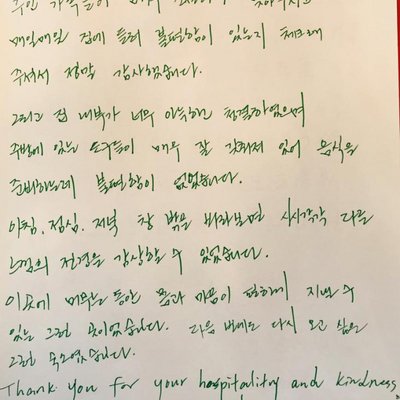 주인 가족들이
매일매일 집에 들려 불편함이 있는지 체크해
주셔서 정말 감사했습니다.
그리고 집 내부가 너무 아늑하고 청결하였으며
주방에 있는 도구들이 매우 잘 갖춰져 있어 음식을
준비하는데 불편함이 없었습니다.
아침, 점심, 저녁 창 밖을 바라보면 시시각각 다른
느낌의 전경을 감상할 수 있었습니다.
이곳에 머무는 동안 몸과 마음이 편하게 지낼 수
있는 그런 곳이었습니다. 다음 번에도 다시 오고 싶은
그런 숙소였습니다.
Thank you for your hospitality and kindness